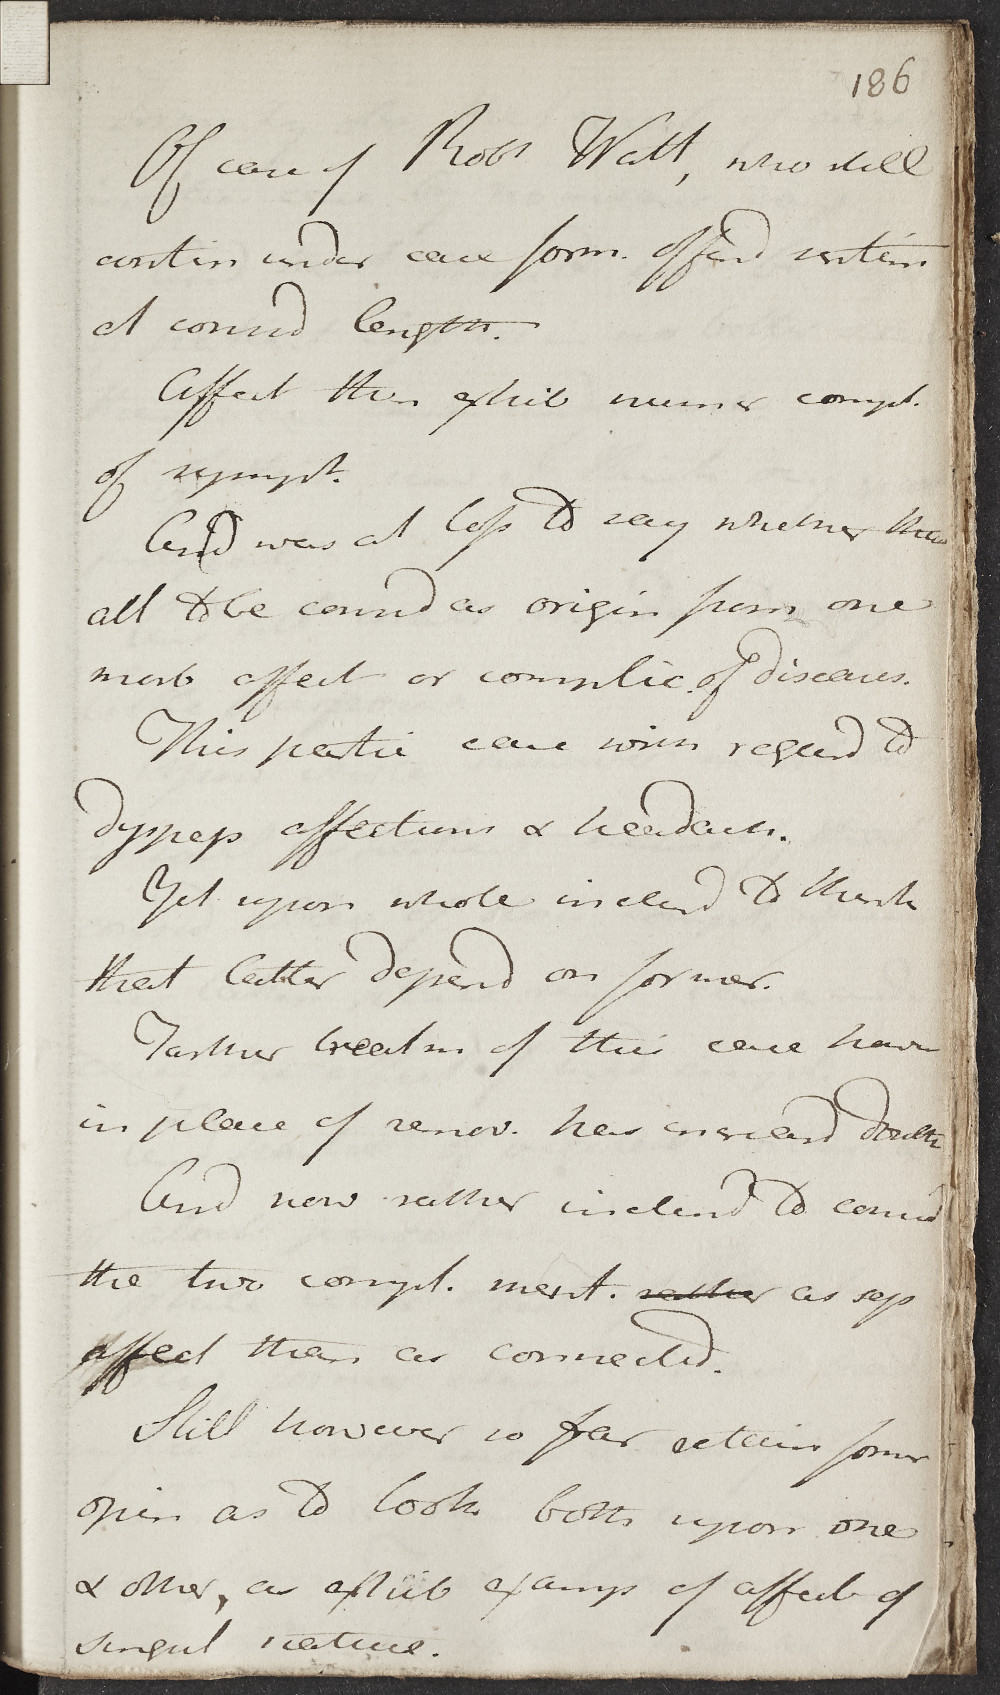 186
Of case of Robt Watt, who still
contin under care form. offerd sentim
at consid length.
Affect then exhib numer compl.
of sympt.
And was at loss to say whether these
all to be consid as origin from one
morb affect or complic. of diseases.
This partic case with regard to
dyspep affections & headach.
Yet upon whole inclend to think
that latter depend on former.
Farther treatm of this case have
in place of remov. has increasd doubts
And now rather inclend to consid
the two compl. ment. rather as sep
affect than as connected.
Still however so far retain former
opin as to look both upon one
& other, as exhib examp of affect of
singul nature.